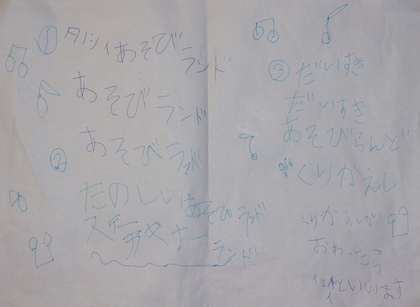 ① タノシイあそび
ランド
あそび
ランド
② あそび
ランド
たのしい
あそびランド
ステーキやナー
ランド
③ だいすき
だいすき
あそびらんど
くりかえし
くりかえしが
おわったら
といいます